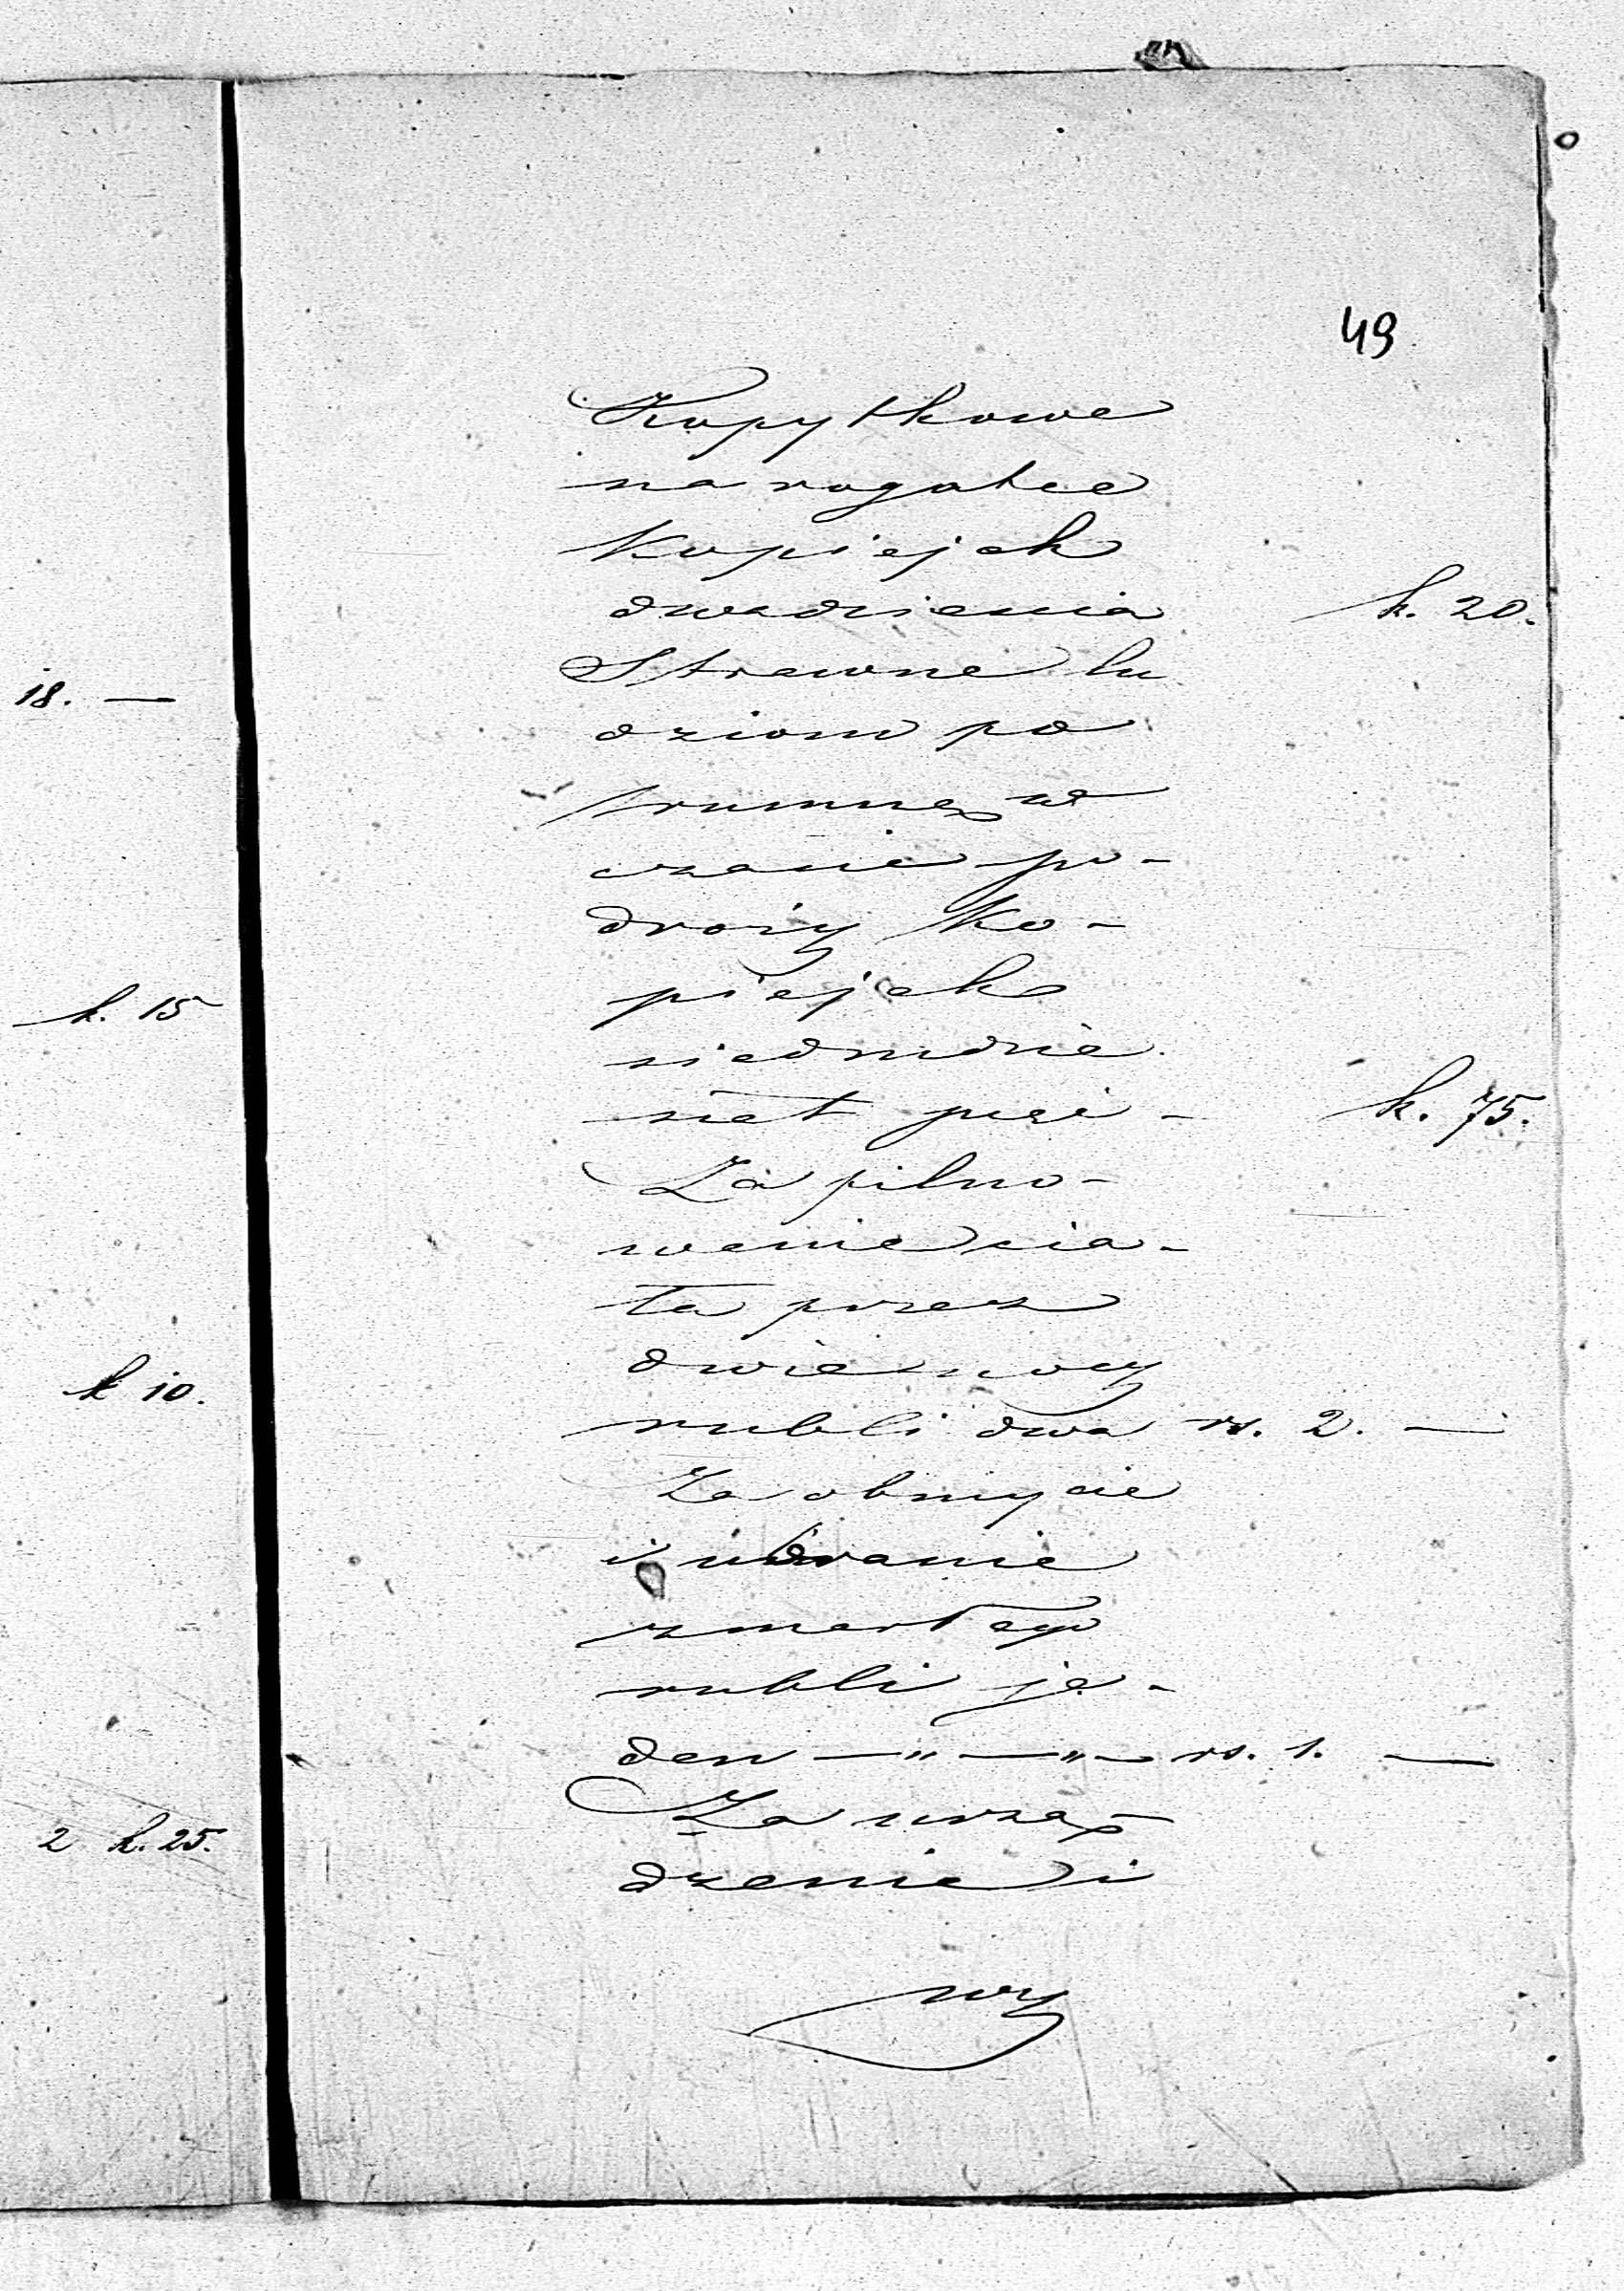 18. —
k. 15
k 10.
2 k. 25.
49
Kopytkowe
na rogatce
Kopiejek
dwadzieścia k. 20.
Strawne lu
dziom po
trumnę w
czasie po-
droży ko-
piejek
siedmdzie
siąt pięć - k. 75.
Za pilno-
wanie cia-
ła przez
dwie nocy
rubli dwa rs. 2. —
Za obmycie
i ubranie
zmarłego
rubli je-
den —"—"— rs. 1. —
Za urzą-
dzenie i
wy